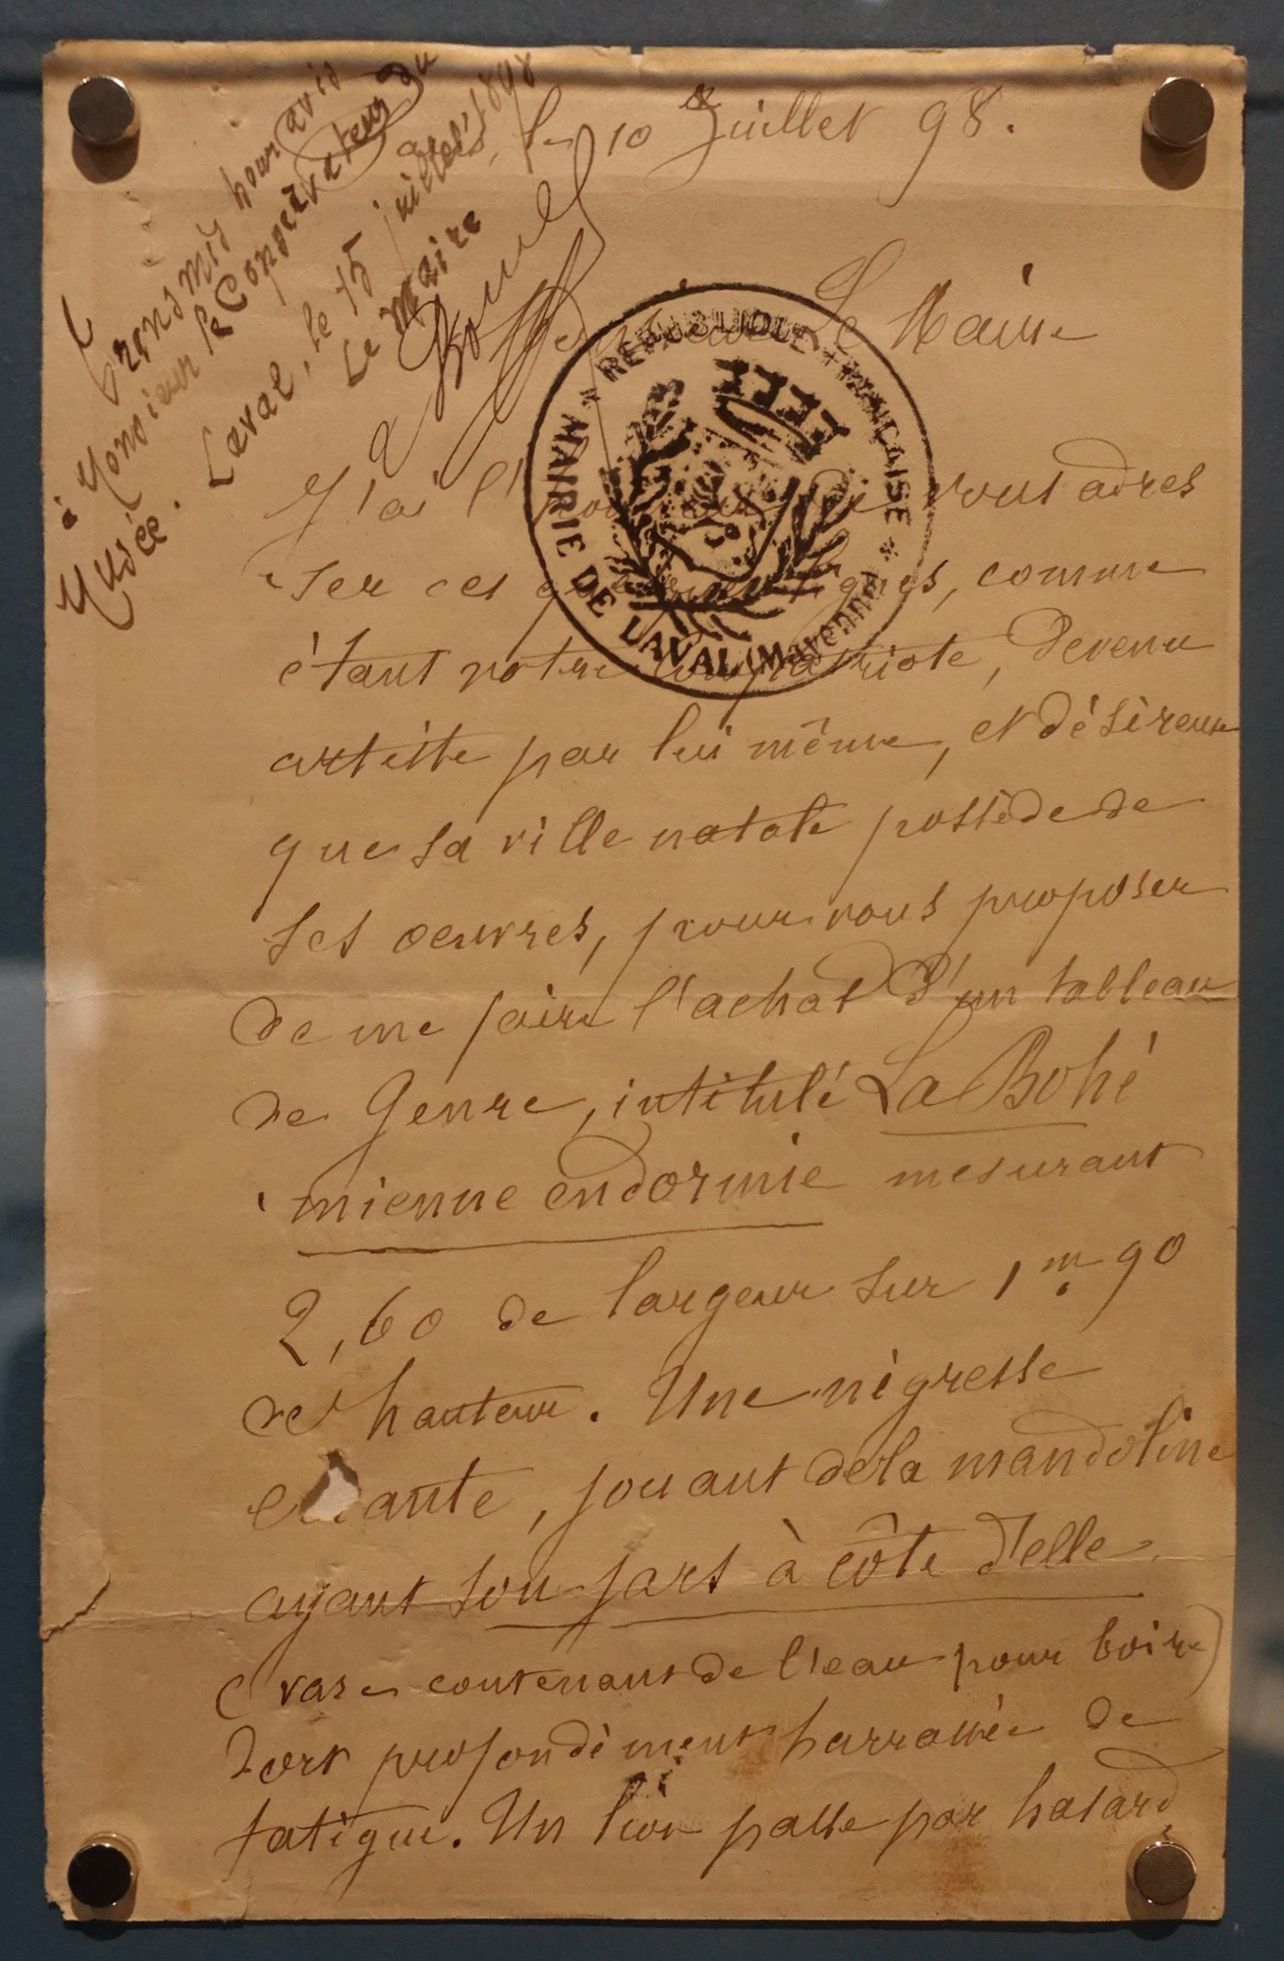 transmis pour avis
à Monsieur le Conservateur du
Musée.
Laval, le 15 juillet 1898
Le Maire
le 10 Juillet 98.
Le Maire
RÉPUBLIQUE FRANÇAISE
MAIRIE DE LAVAL (Mayenne)
J'ai l'honneur de vous adres
ser ces quelques lignes, comme
étant votre compatriote, devenu
artiste par lui même, et désireux
que sa ville natale possède de
ses œuvres, pour vous proposer
de me faire l'achat d'un tableau
de Genre, intitulé La Bohé
mienne endormie mesurant
2,60 de largeur sur 1m.90
de hauteur. Une nègresse
errante, jouant de la mandoline
ayant son jars à côté d'elle
(vase contenant de l'eau pour boire)
dort profondèment harrassée de
fatigue. Un lion passe par hasard